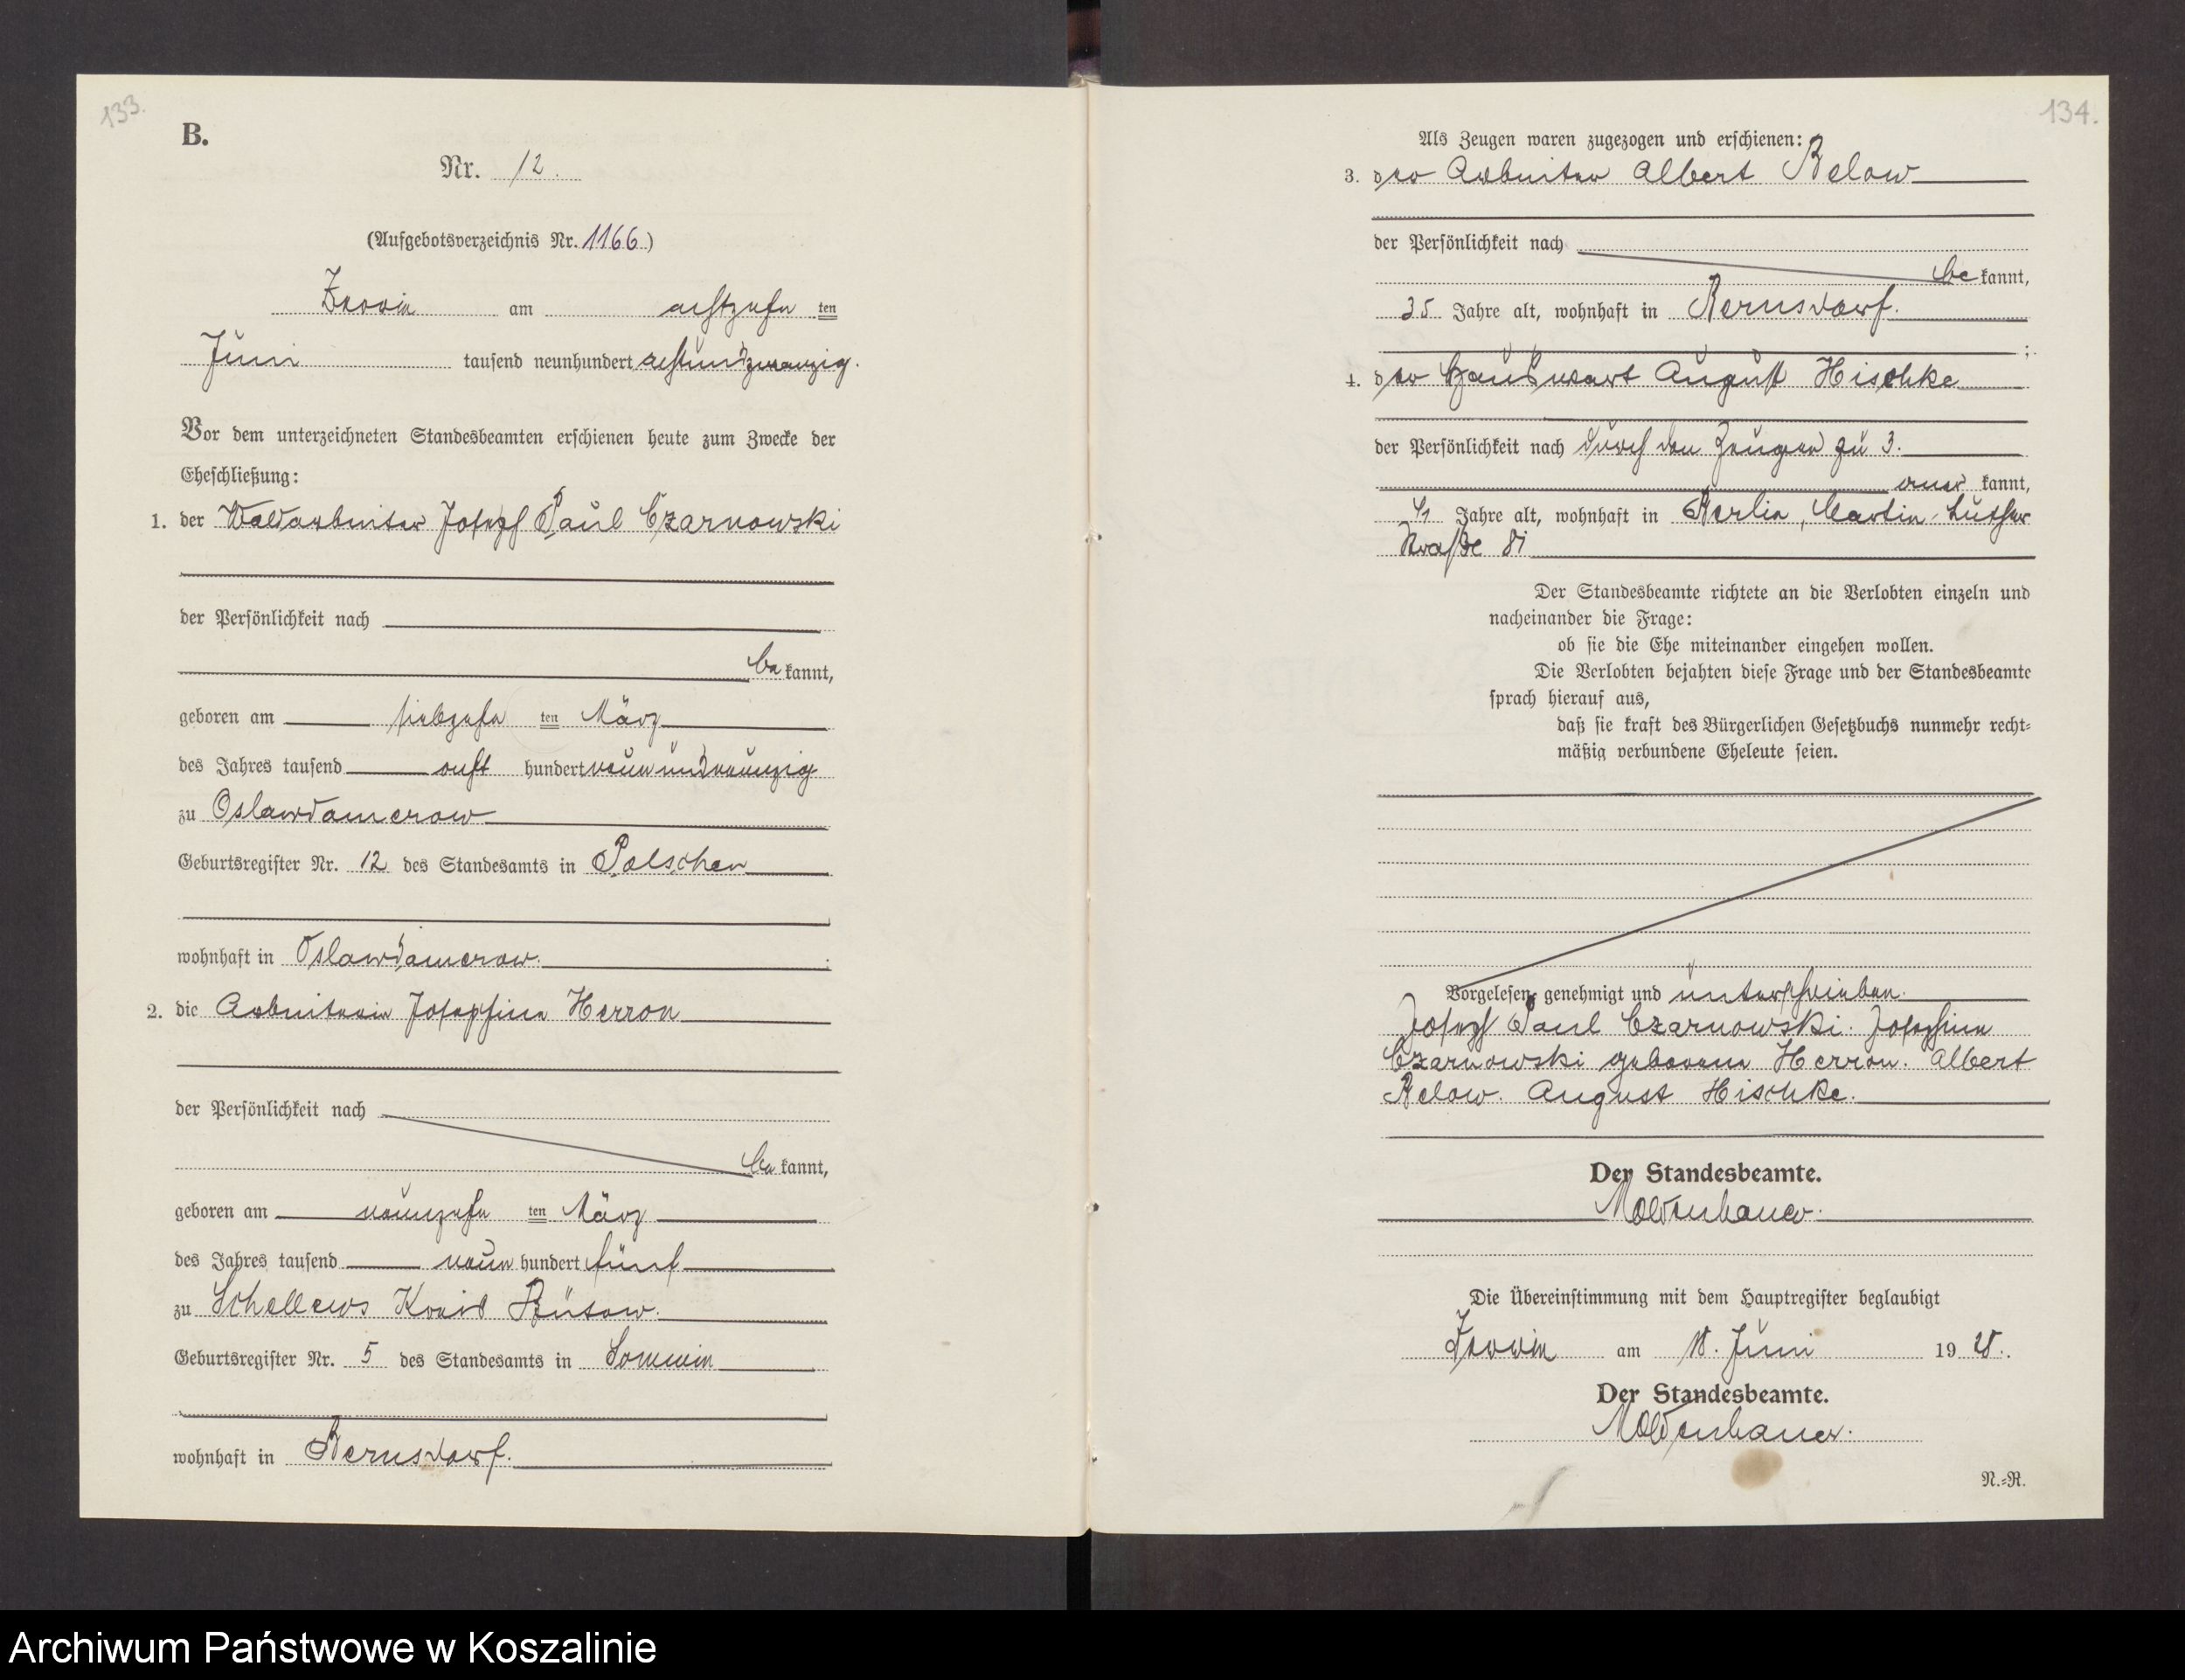 133.
B.
Nr. 12.
(Aufgebotsverzeichnis Nr. 1166)
am achtzehn ten
Juni tausend neunhundert achtundzwanzig.
Vor dem unterzeichneten Standesbeamten erschienen heute zum Zwecke der
Eheschließung:
1. der Waldarbeiter Joseph Paul Czarnowski
der Persönlichkeit nach
be kannt,
geboren am siebzehn ten März
des Jahres tausend acht hundert neunundneunzig
zu Oslawdamerow
Geburtsregister Nr. 12 des Standesamts in Polschen
wohnhaft in Oslawdamerow.
2. die Arbeiterin Josephine Herron
der Persönlichkeit nach
be kannt,
geboren am neunzehn ten März
des Jahres tausend neun hundert fünf
zu Schellews Kreis Bütow.
Geburtsregister Nr. 5 des Standesamts in Sommin
wohnhaft in Bernsdorf.
134.
Als Zeugen waren zugezogen und erschienen:
3. der Arbeiter Albert Below
der Persönlichkeit nach
be kannt,
35 Jahre alt, wohnhaft in Bernsdorf.
;
4. der Hauswart August Hischke
der Persönlichkeit nach durch den Zeugen zu 3.
aner kannt,
41 Jahre alt, wohnhaft in Berlin, Martin-Luther
Straße 81
Der Standesbeamte richtete an die Verlobten einzeln und
nacheinander die Frage:
ob sie die Ehe miteinander eingehen wollen.
Die Verlobten bejahten diese Frage und der Standesbeamte
sprach hierauf aus,
daß sie kraft des Bürgerlichen Gesetzbuchs nunmehr recht=
mäßig verbundene Eheleute seien.
Vorgelesen, genehmigt und unterschrieben.
Joseph Paul Czarnowski. Josephine
Czarnowski geborene Herron. Albert
Below. August Hischke.
Der Standesbeamte.
Moldenhauer.
Die Übereinstimmung mit dem Hauptregister beglaubigt
am 18. Juni 19 28.
Der Standesbeamte.
Moldenhauer.
N.=R.
Archiwum Państwowe w Koszalinie